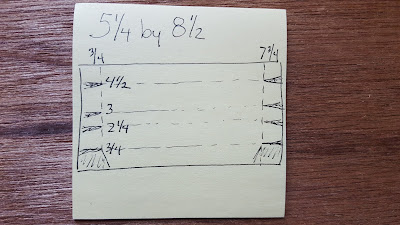 5 1/4 by 8 1/2
3/4 7 3/4
4 1/2
3
2 1/4
3/4